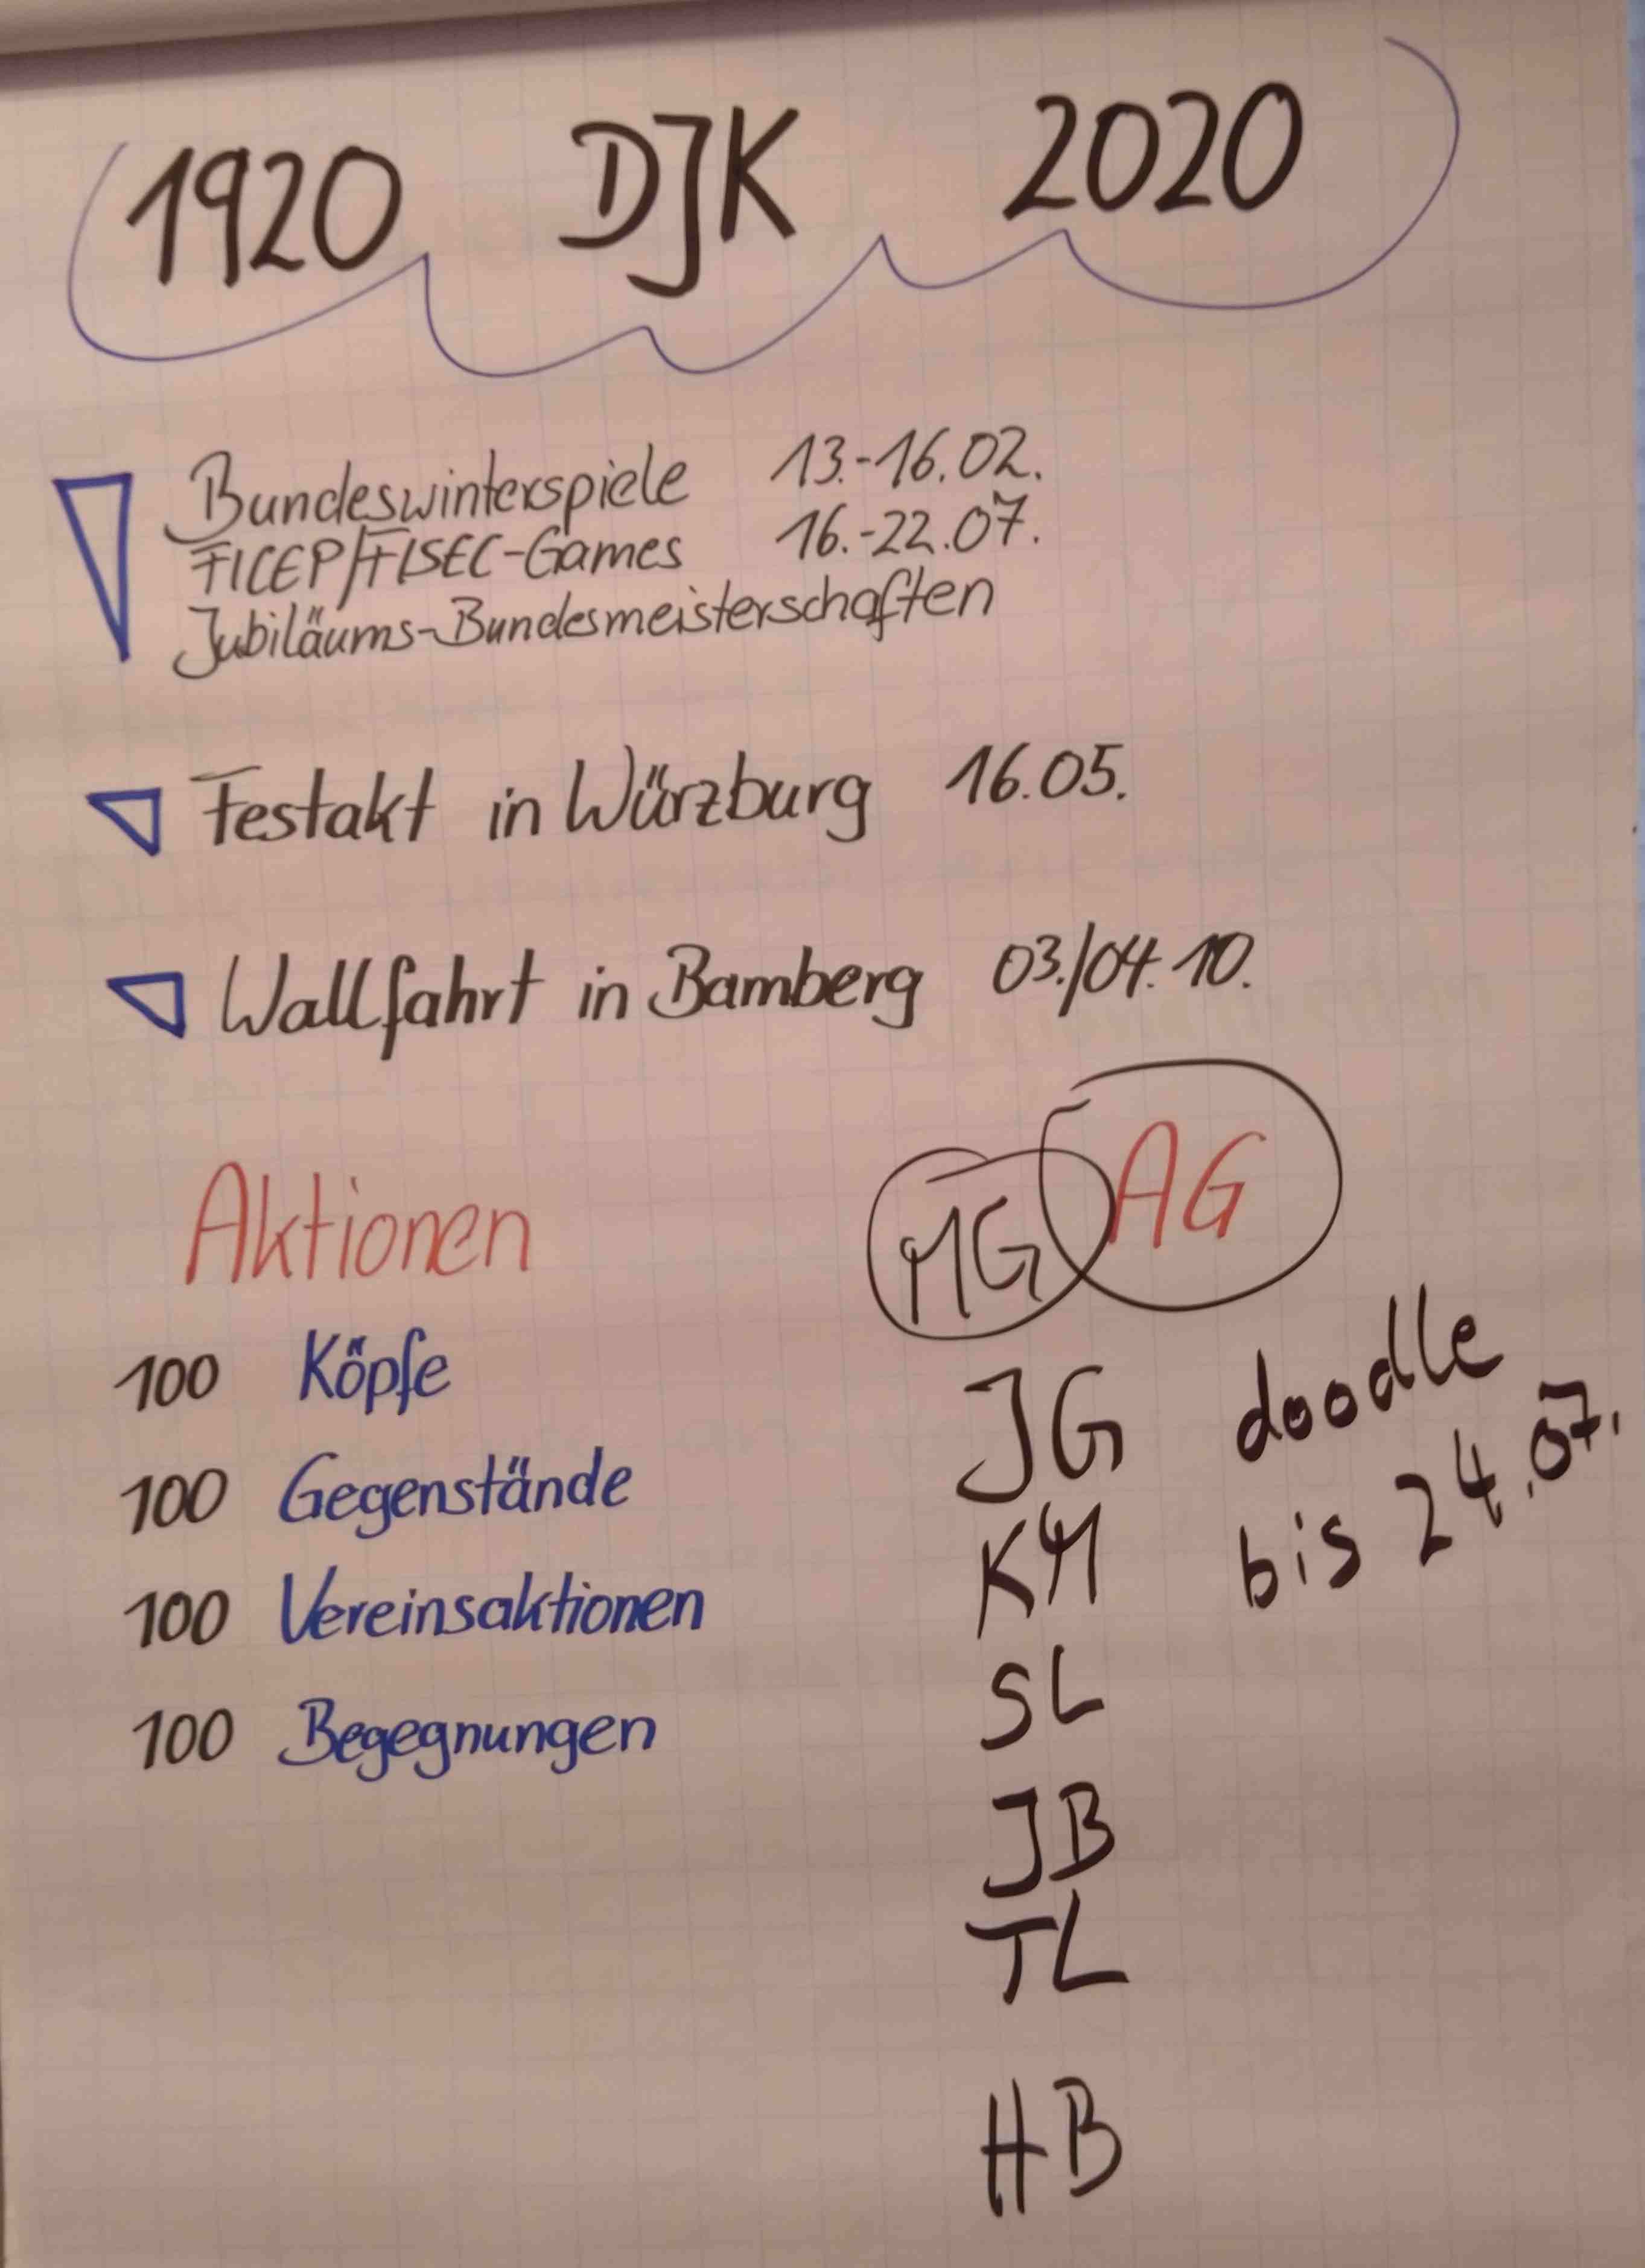 1920 DJK 2020
Bundeswinterspiele 13.-16.02.
FICEP/FISEC-Games 16.-22.07.
Jubiläums-Bundesmeisterschaften
Festakt in Würzburg 16.05.
Wallfahrt in Bamberg 03./04.10.
Aktionen
100 Köpfe
100 Gegenstände
100 Vereinsaktionen
100 Begegnungen
MG AG
JG
KM
SL
JB
TL
HB
doodle
bis 24.07.